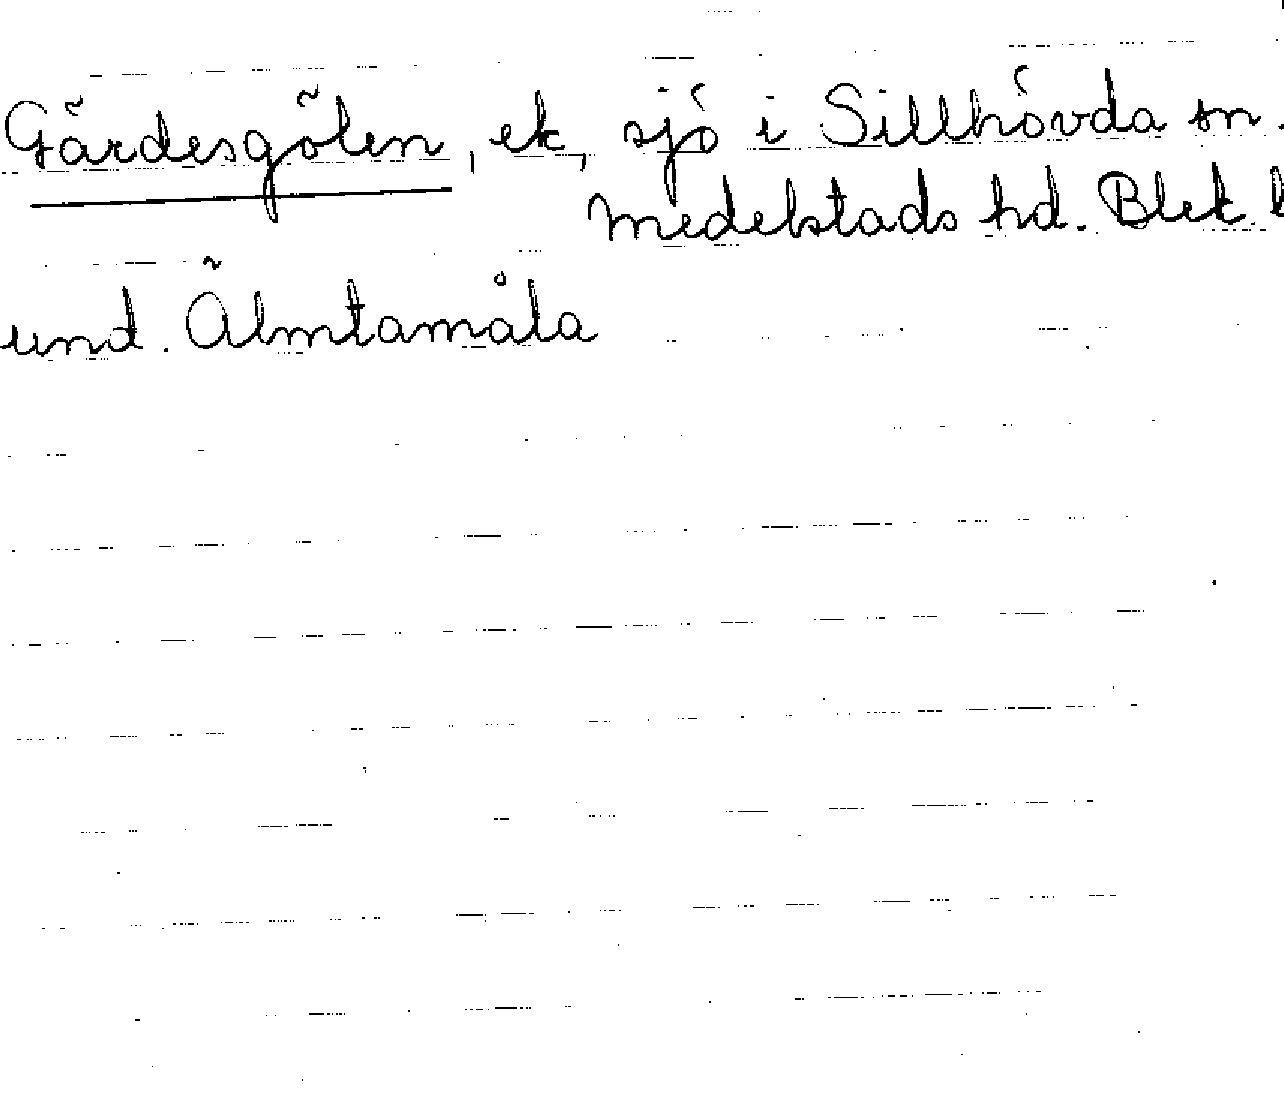 Gärdesgölen, ek, sjö i Sillhövda sn.
Medelstads hd. Blek. l
und. Älmtamåla